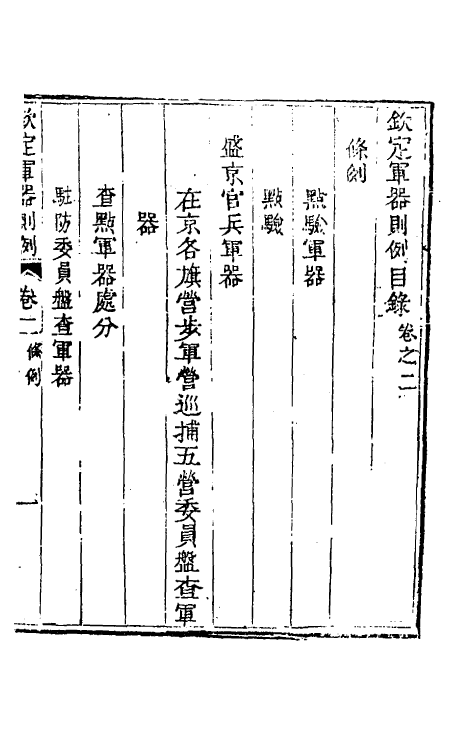 欽定軍器則例目錄 卷之二
條例
點驗軍器
點驗
盛京官兵軍器
在京各旗營步軍營巡捕五營委員盤查軍
器
查點軍器處分
駐防委員盤查軍器
欽定軍器則例 卷二 條例 一